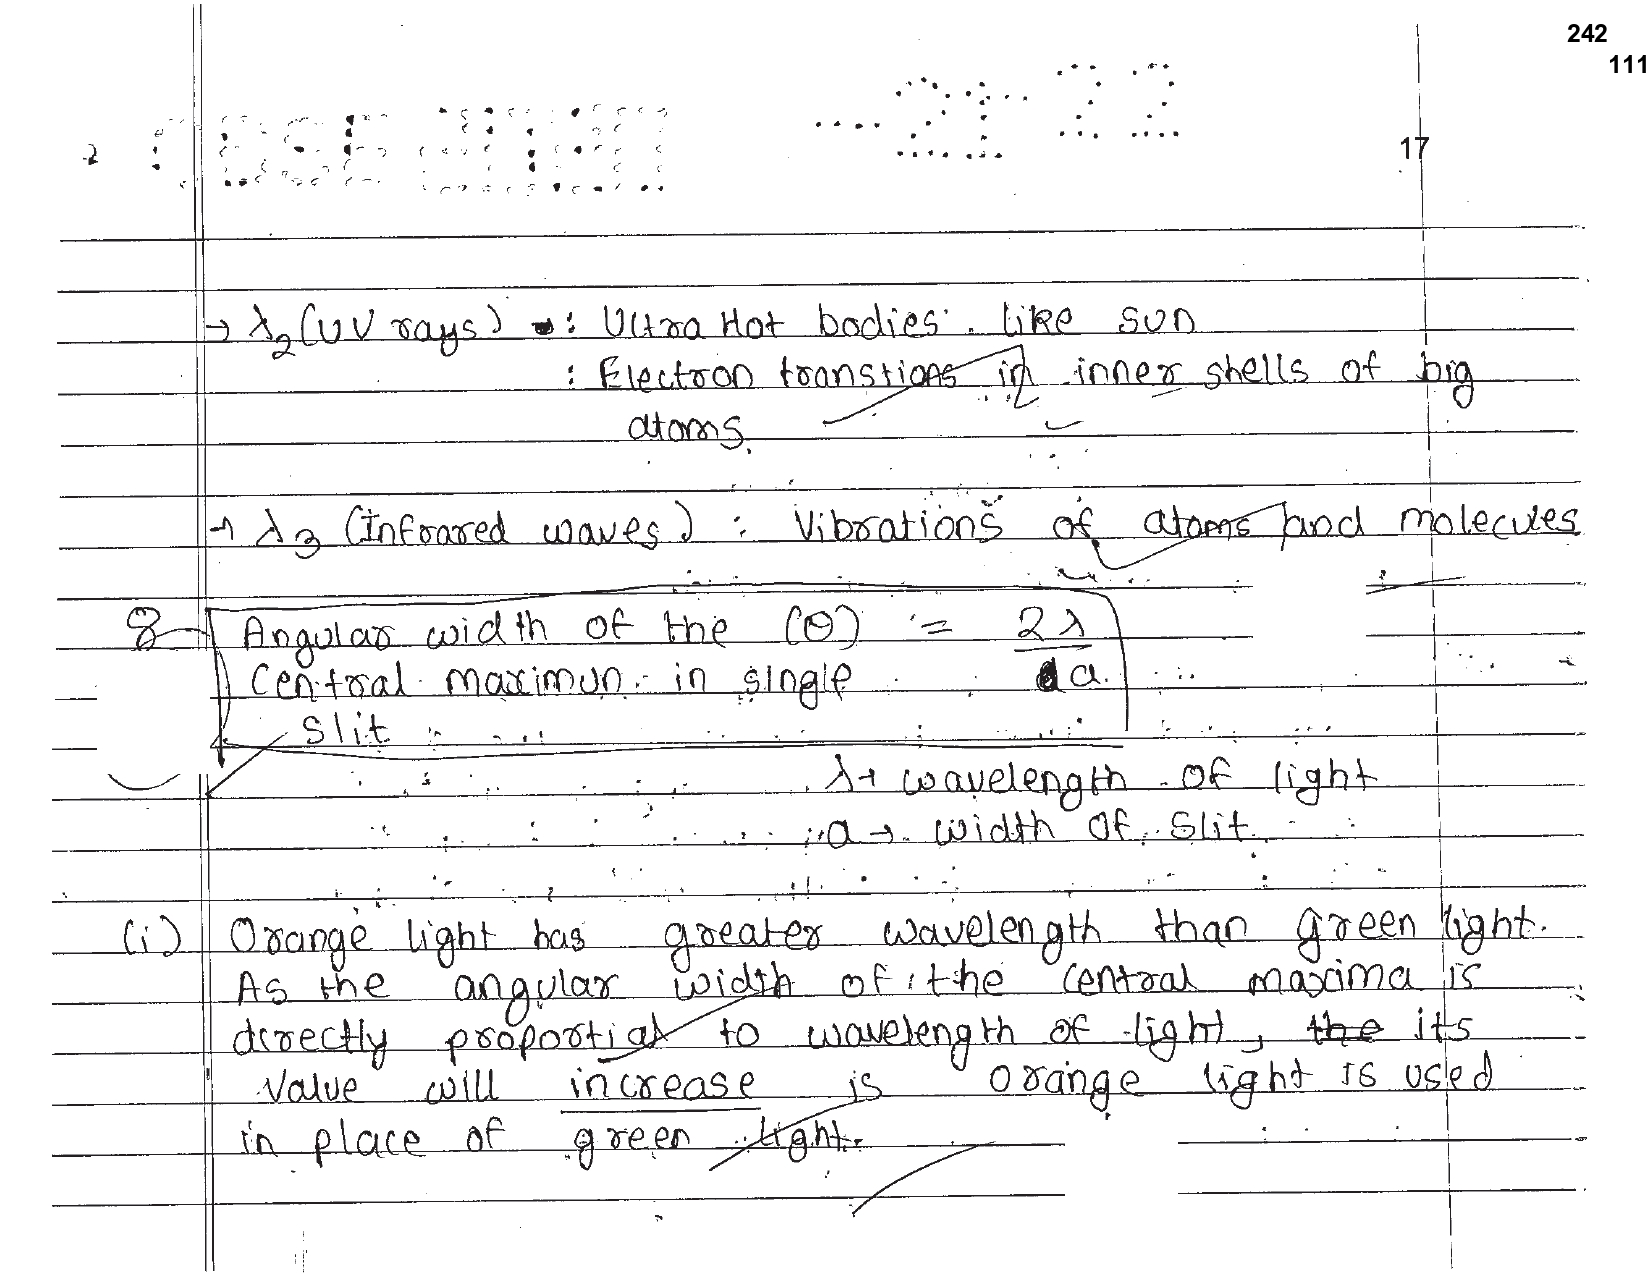 242
111
17
→ λ2 (UV rays) : Ultra Hot bodies like sun
: Electron transtions in inner shells of big
atoms.
→ λ3 (Infrared waves) : Vibrations of atoms and molecules
8 Angular width of the (θ) = 2λ
central maximun in single a
slit
λ → wavelength of light
a → width of slit
(i) Orange light has greater wavelength than green light.
As the angular width of the central maxima is
directly proportial to wavelength of light, the its
value will increase is orange light is used
in place of green light.